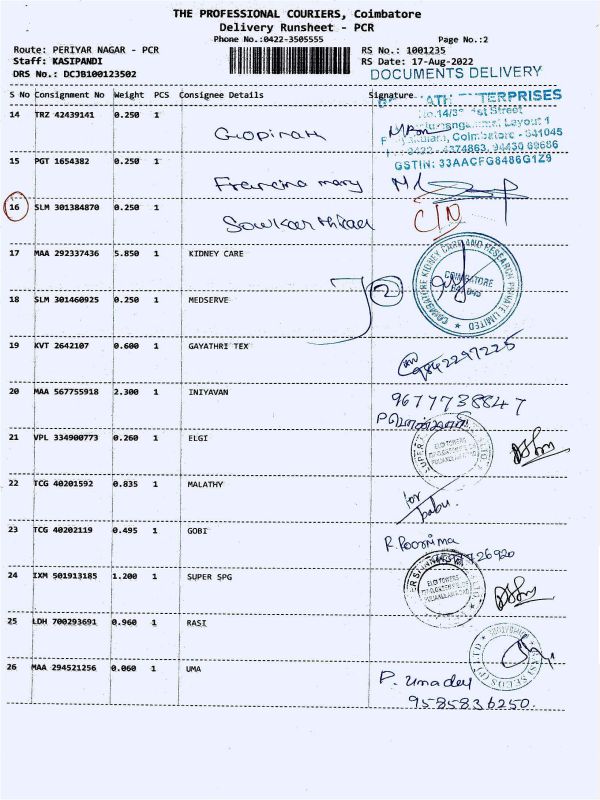 THE PROFESSIONAL COURIERS, Coimbatore
Delivery Runsheet - PCR
Phone No.:0422-3505555
Page No.:2
Route: PERIYAR NAGAR - PCR
RS No.: 1001235
Staff: KASIPANDI
RS Date: 17-Aug-2022
DRS No.: DCJB100123502
DOCUMENTS DELIVERY
S No Consignment No Weight PCS Consignee Details Signature
14 TRZ 42439141 0.250 1 Gopinath
GSTIN: 33AACFG8486G1Z9
15 PGT 1654382 0.250 1 Francina mary
16 SLM 301384870 0.250 1
17 MAA 292337436 5.850 1 KIDNEY CARE
COIMBATORE KIDNEY CARE AND RESEARCH PRIVATE LIMITED
COIMBATORE
2
18 SLM 301460925 0.250 1 MEDSERVE
19 KVT 2642107 0.600 1 GAYATHRI TEX
9842297225
20 MAA 567755918 2.300 1 INIYAVAN
9677738847
21 VPL 334900773 0.260 1 ELGI
ELGI TOWERS
22 TCG 40201592 0.835 1 MALATHY
for
babu
23 TCG 40202119 0.495 1 GOBI
R. Poornima
24 IXM 501913185 1.200 1 SUPER SPG
ELGI TOWERS
25 LDH 700293691 0.960 1 RASI
26 MAA 294521256 0.060 1 UMA
P. Umadevi
9585836250.